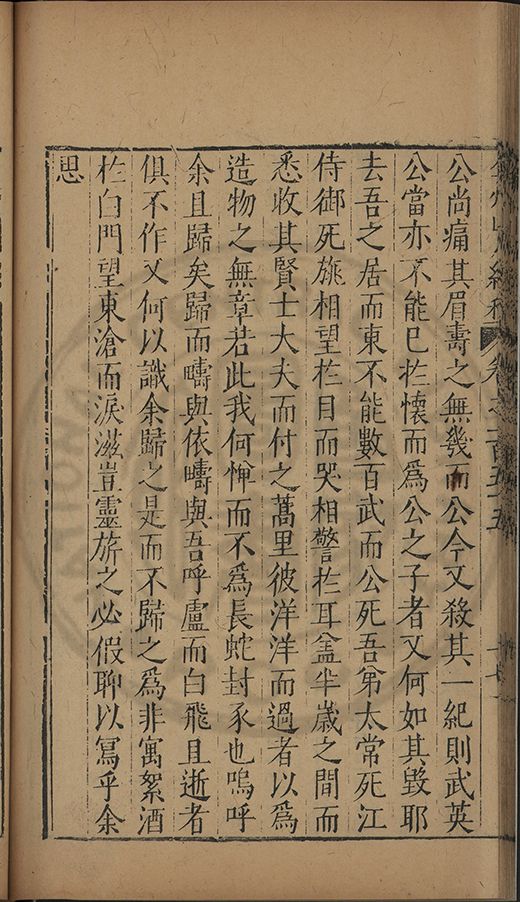 公尚痛其眉壽之無幾而公今又殺其一紀則武英
公當亦不能已於懷而爲公之子者又何如其毀耶
去吾之居而東不能數百武而公死吾第太常死江
侍御死旐相望於目而哭相警於耳盖半歲之間而
悉收其賢士大夫而付之蒿里彼洋洋而過者以爲
造物之無章若此我何憚而不爲長蛇封豕也嗚呼
余且歸矣歸而疇與依疇與吾呼盧而白飛且逝者
俱不作又何以識余歸之是而不歸之爲非寓絮酒
於白門望東滄而淚滋豈靈旂之必假聊以冩乎余
思